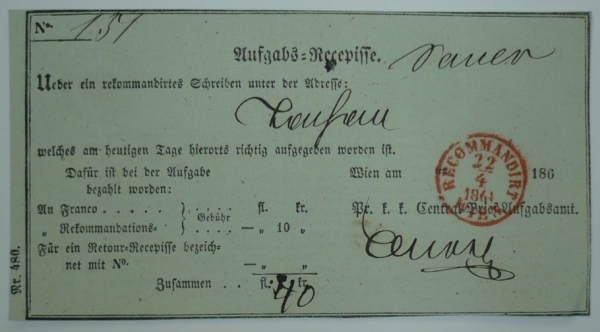 No. 151
Aufgabs-Recepisse.
Ueber ein rekommandirtes Schreiben unter der Adresse:
welches am heutigen Tage hierorts richtig aufgegeben worden ist.
Dafür ist bei der Aufgabe bezahlt worden:
Wien am 186
An Franco . . . . . } . . . . fl. kr.
„ Rekommandations- } Gebühr . . . . — „ 10 „
Pr. k. k. Central-Brief-Aufgabsamt.
Für ein Retour-Recepisse bezeich-
net mit No. — „ „
Zusammen . . fl. kr.
40
Nr. 480.
RECOMMANDIRT
22
4
1861
WIEN